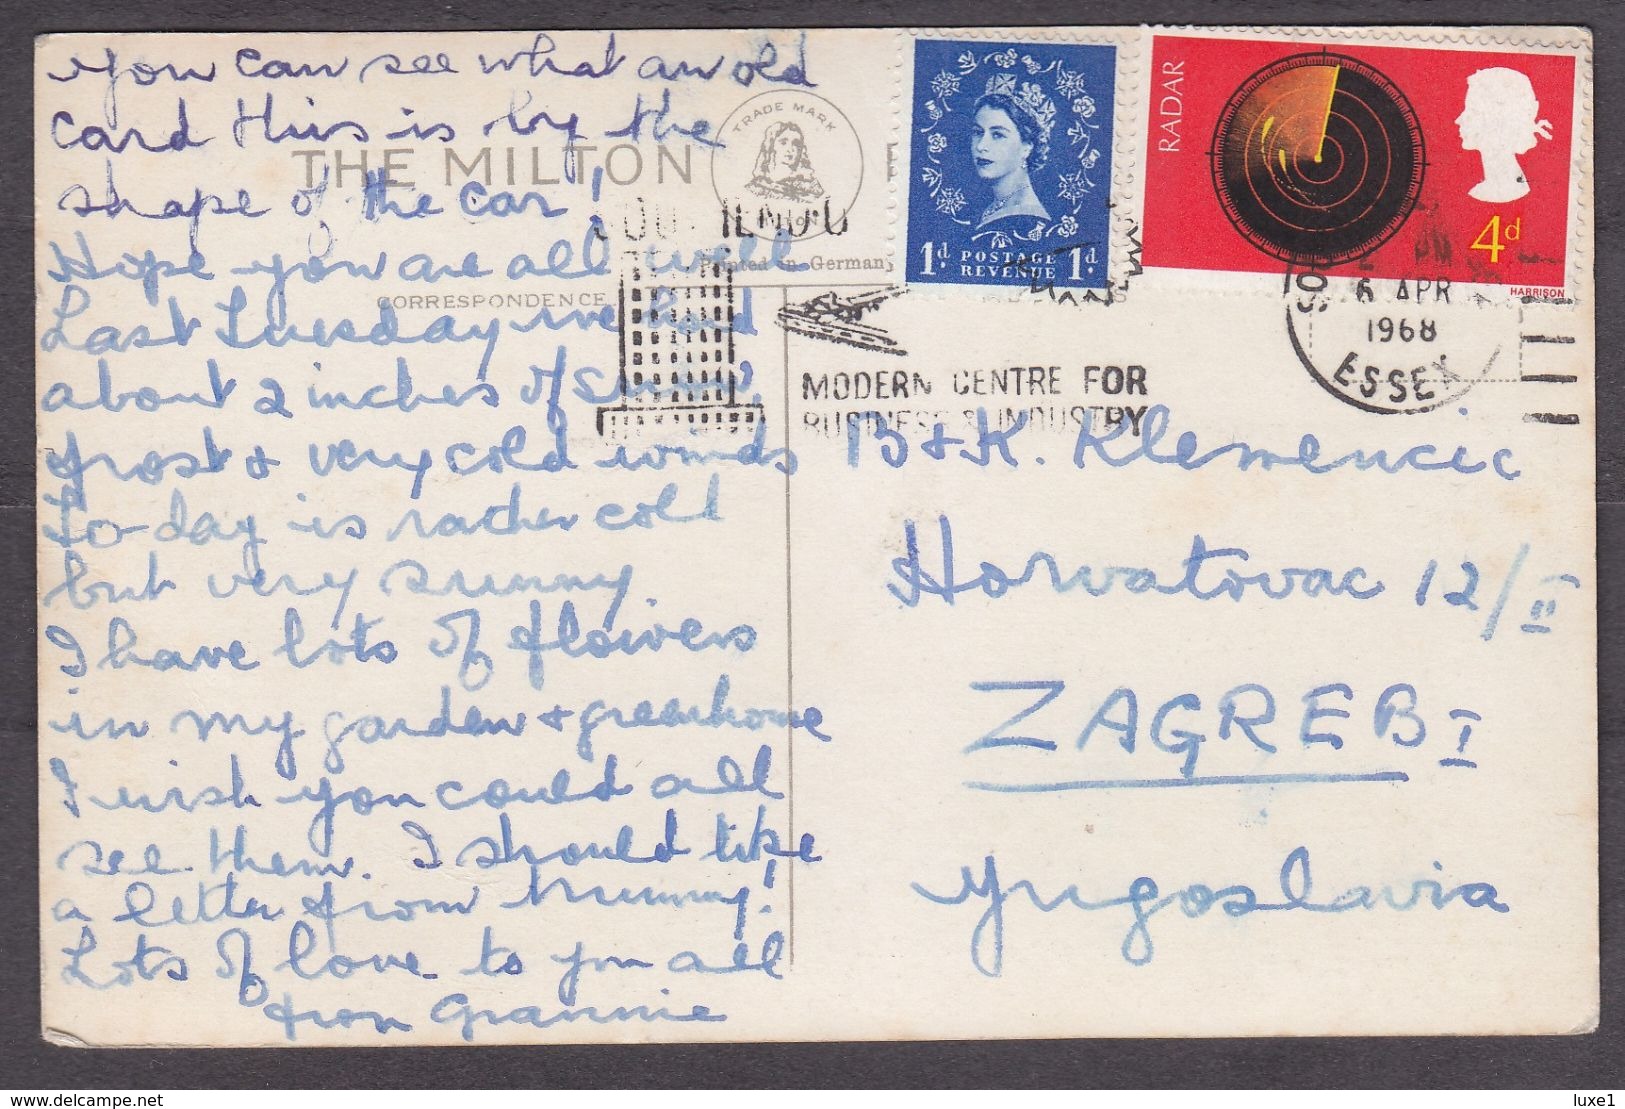 you can see what an old
card this is by the
shape of the car!
Hope you are all well.
Last Tuesday we had
about 2 inches of snow,
frost & very cold winds
To-day is rather cold
but very sunny.
I have lots of flowers
in my garden & greenhouse
I wish you could all
see them. I should like
a letter from Mummy!
Lots of love to you all
from Grannie
THE MILTON
TRADE MARK
MILTON
Printed in Germany
CORRESPONDENCE
SOUTHEND
MODERN CENTRE FOR
BUSINESS & INDUSTRY
1d POSTAGE REVENUE 1d
RADAR
4d
HARRISON
6 APR
1968
ESSEX
B & K. Klemencic
Horvatovac 12/II
ZAGREB I
Yugoslavia
luxe1